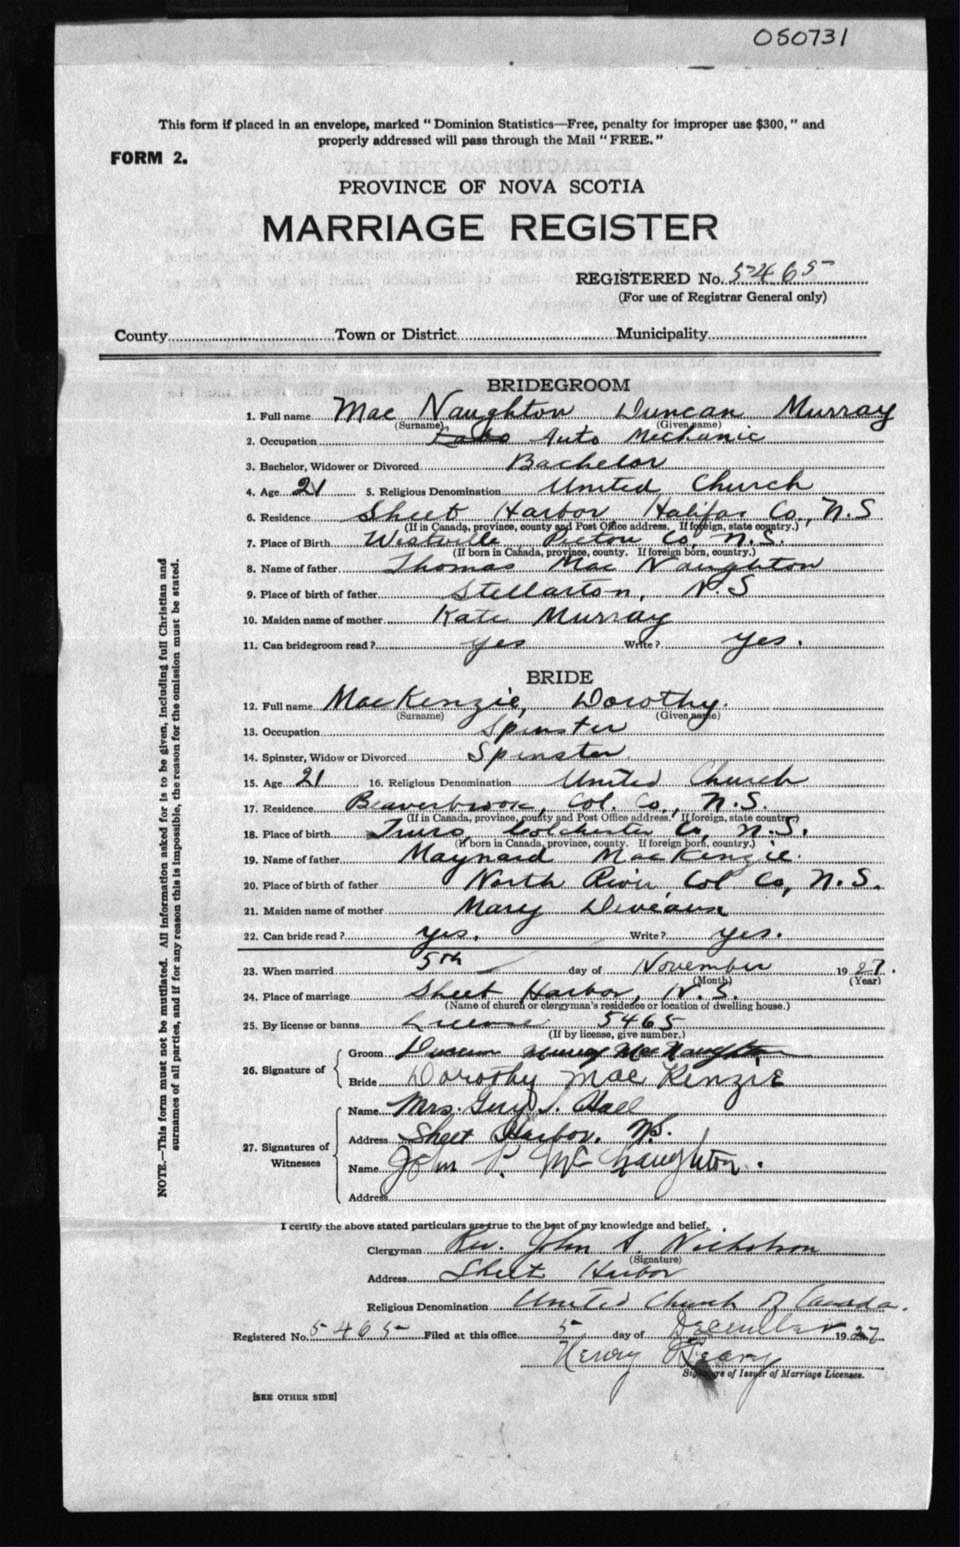 050731
This form if placed in an envelope, marked "Dominion Statistics—Free, penalty for improper use $300," and
properly addressed will pass through the Mail "FREE."
FORM 2.
PROVINCE OF NOVA SCOTIA
MARRIAGE REGISTER
REGISTERED No. 5465
(For use of Registrar General only)
County Town or District Municipality
BRIDEGROOM
1. Full name Mac Naughton Duncan Murray
(Surname) (Given name)
2. Occupation Auto Mechanic
3. Bachelor, Widower or Divorced Bachelor
4. Age 21 5. Religious Denomination United Church
6. Residence Sheet Harbor Halifax Co., N.S
(If in Canada, province, county and Post Office address. If foreign, state country.)
7. Place of Birth Westville Pictou Co, N.S.
(If born in Canada, province, county. If foreign born, country.)
8. Name of father Thomas Mac Naughton
9. Place of birth of father Stellarton, N.S
10. Maiden name of mother Kate Murray
11. Can bridegroom read? yes Write? yes.
BRIDE
12. Full name MacKenzie, Dorothy.
(Surname) (Given name)
13. Occupation Spinster
14. Spinster, Widow or Divorced Spinster
15. Age 21 16. Religious Denomination United Church
17. Residence Beaverbrook, Col. Co., N.S.
(If in Canada, province, county and Post Office address. If foreign, state country)
18. Place of birth Truro, Colchester Co, N.S.
(If born in Canada, province, county. If foreign born, country.)
19. Name of father Maynard MacKenzie.
20. Place of birth of father North River, Col Co, N.S.
21. Maiden name of mother Mary
22. Can bride read? yes. Write? yes.
23. When married 5th day of November 1927.
(Month) (Year)
24. Place of marriage Sheet Harbor, N.S.
(Name of church or clergyman's residence or location of dwelling house.)
25. By license or banns License 5465
(If by license, give number.)
26. Signature of
Groom Duncan Murray MacNaughton
Bride Dorothy Mac Kenzie
27. Signatures of
Witnesses
Name Mrs. Hall
Address Sheet Harbor. N.S.
Name John P. McNaughton.
Address
I certify the above stated particulars are true to the best of my knowledge and belief.
Clergyman Rev. John A. Nicholson
(Signature)
Address Sheet Harbor
Religious Denomination United Church of Canada.
Registered No. 5465 Filed at this office 5 day of December 1927
Henry
Signature of Issuer of Marriage Licenses.
[SEE OTHER SIDE]
NOTE.—This form must not be mutilated. All information asked for is to be given, including full Christian and
surnames of all parties, and if for any reason this is impossible, the reason for the omission must be stated.